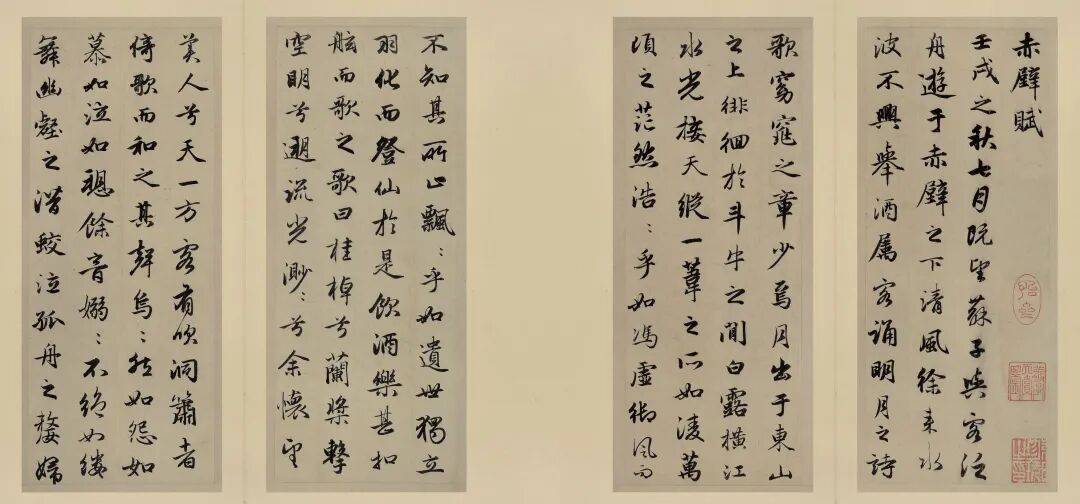 赤壁賦
壬戌之秋七月既望蘇子與客泛
舟遊于赤壁之下清風徐来水
波不興舉酒属客誦明月之詩
歌窈窕之章少焉月出于東山
之上徘徊於斗牛之間白露橫江
水光接天縱一葦之所如凌萬
頃之茫然浩〻乎如馮虛御風而
不知其所止飄〻乎如遺世獨立
羽化而登仙於是飲酒樂甚扣
舷而歌之歌曰桂棹兮蘭槳擊
空明兮遡流光渺〻兮余懷望
美人兮天一方客有吹洞簫者
倚歌而和之其聲烏〻然如怨如
慕如泣如愬餘音嫋〻不絕如縷
舞幽壑之潛蛟泣孤舟之嫠婦